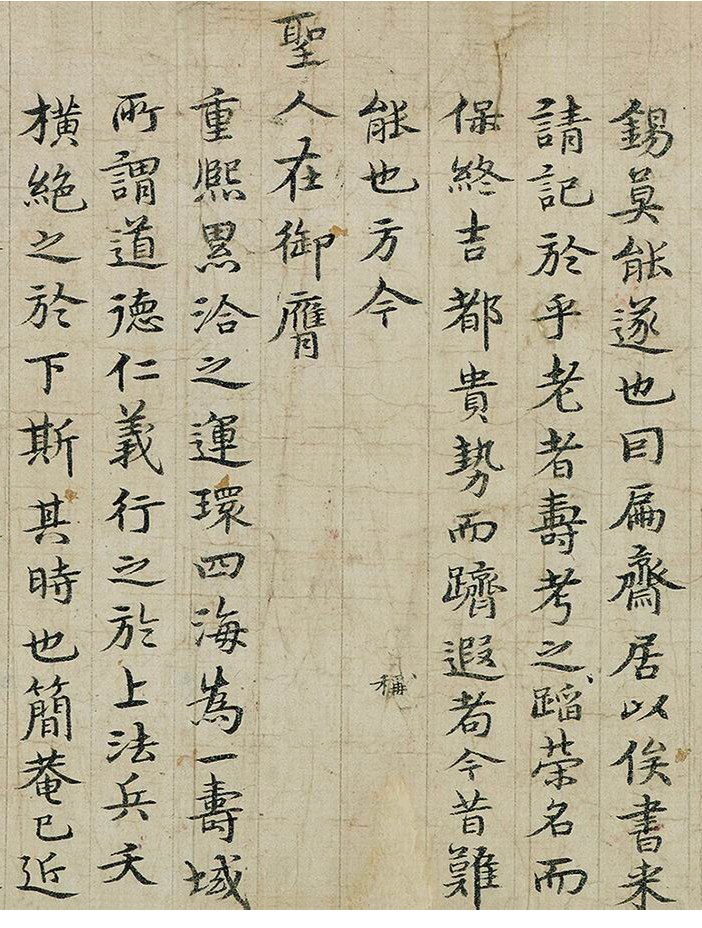 錫莫能遂也曰扁齋居以俟書来
請記於乎老者壽考之蹈榮名而
保終吉都貴勢而躋遐耇今昔難
能也方今
稱
聖人在御膺
重熙累洽之運環四海為一壽域
所謂道德仁義行之於上法兵夭
橫絶之於下斯其時也簡菴已近